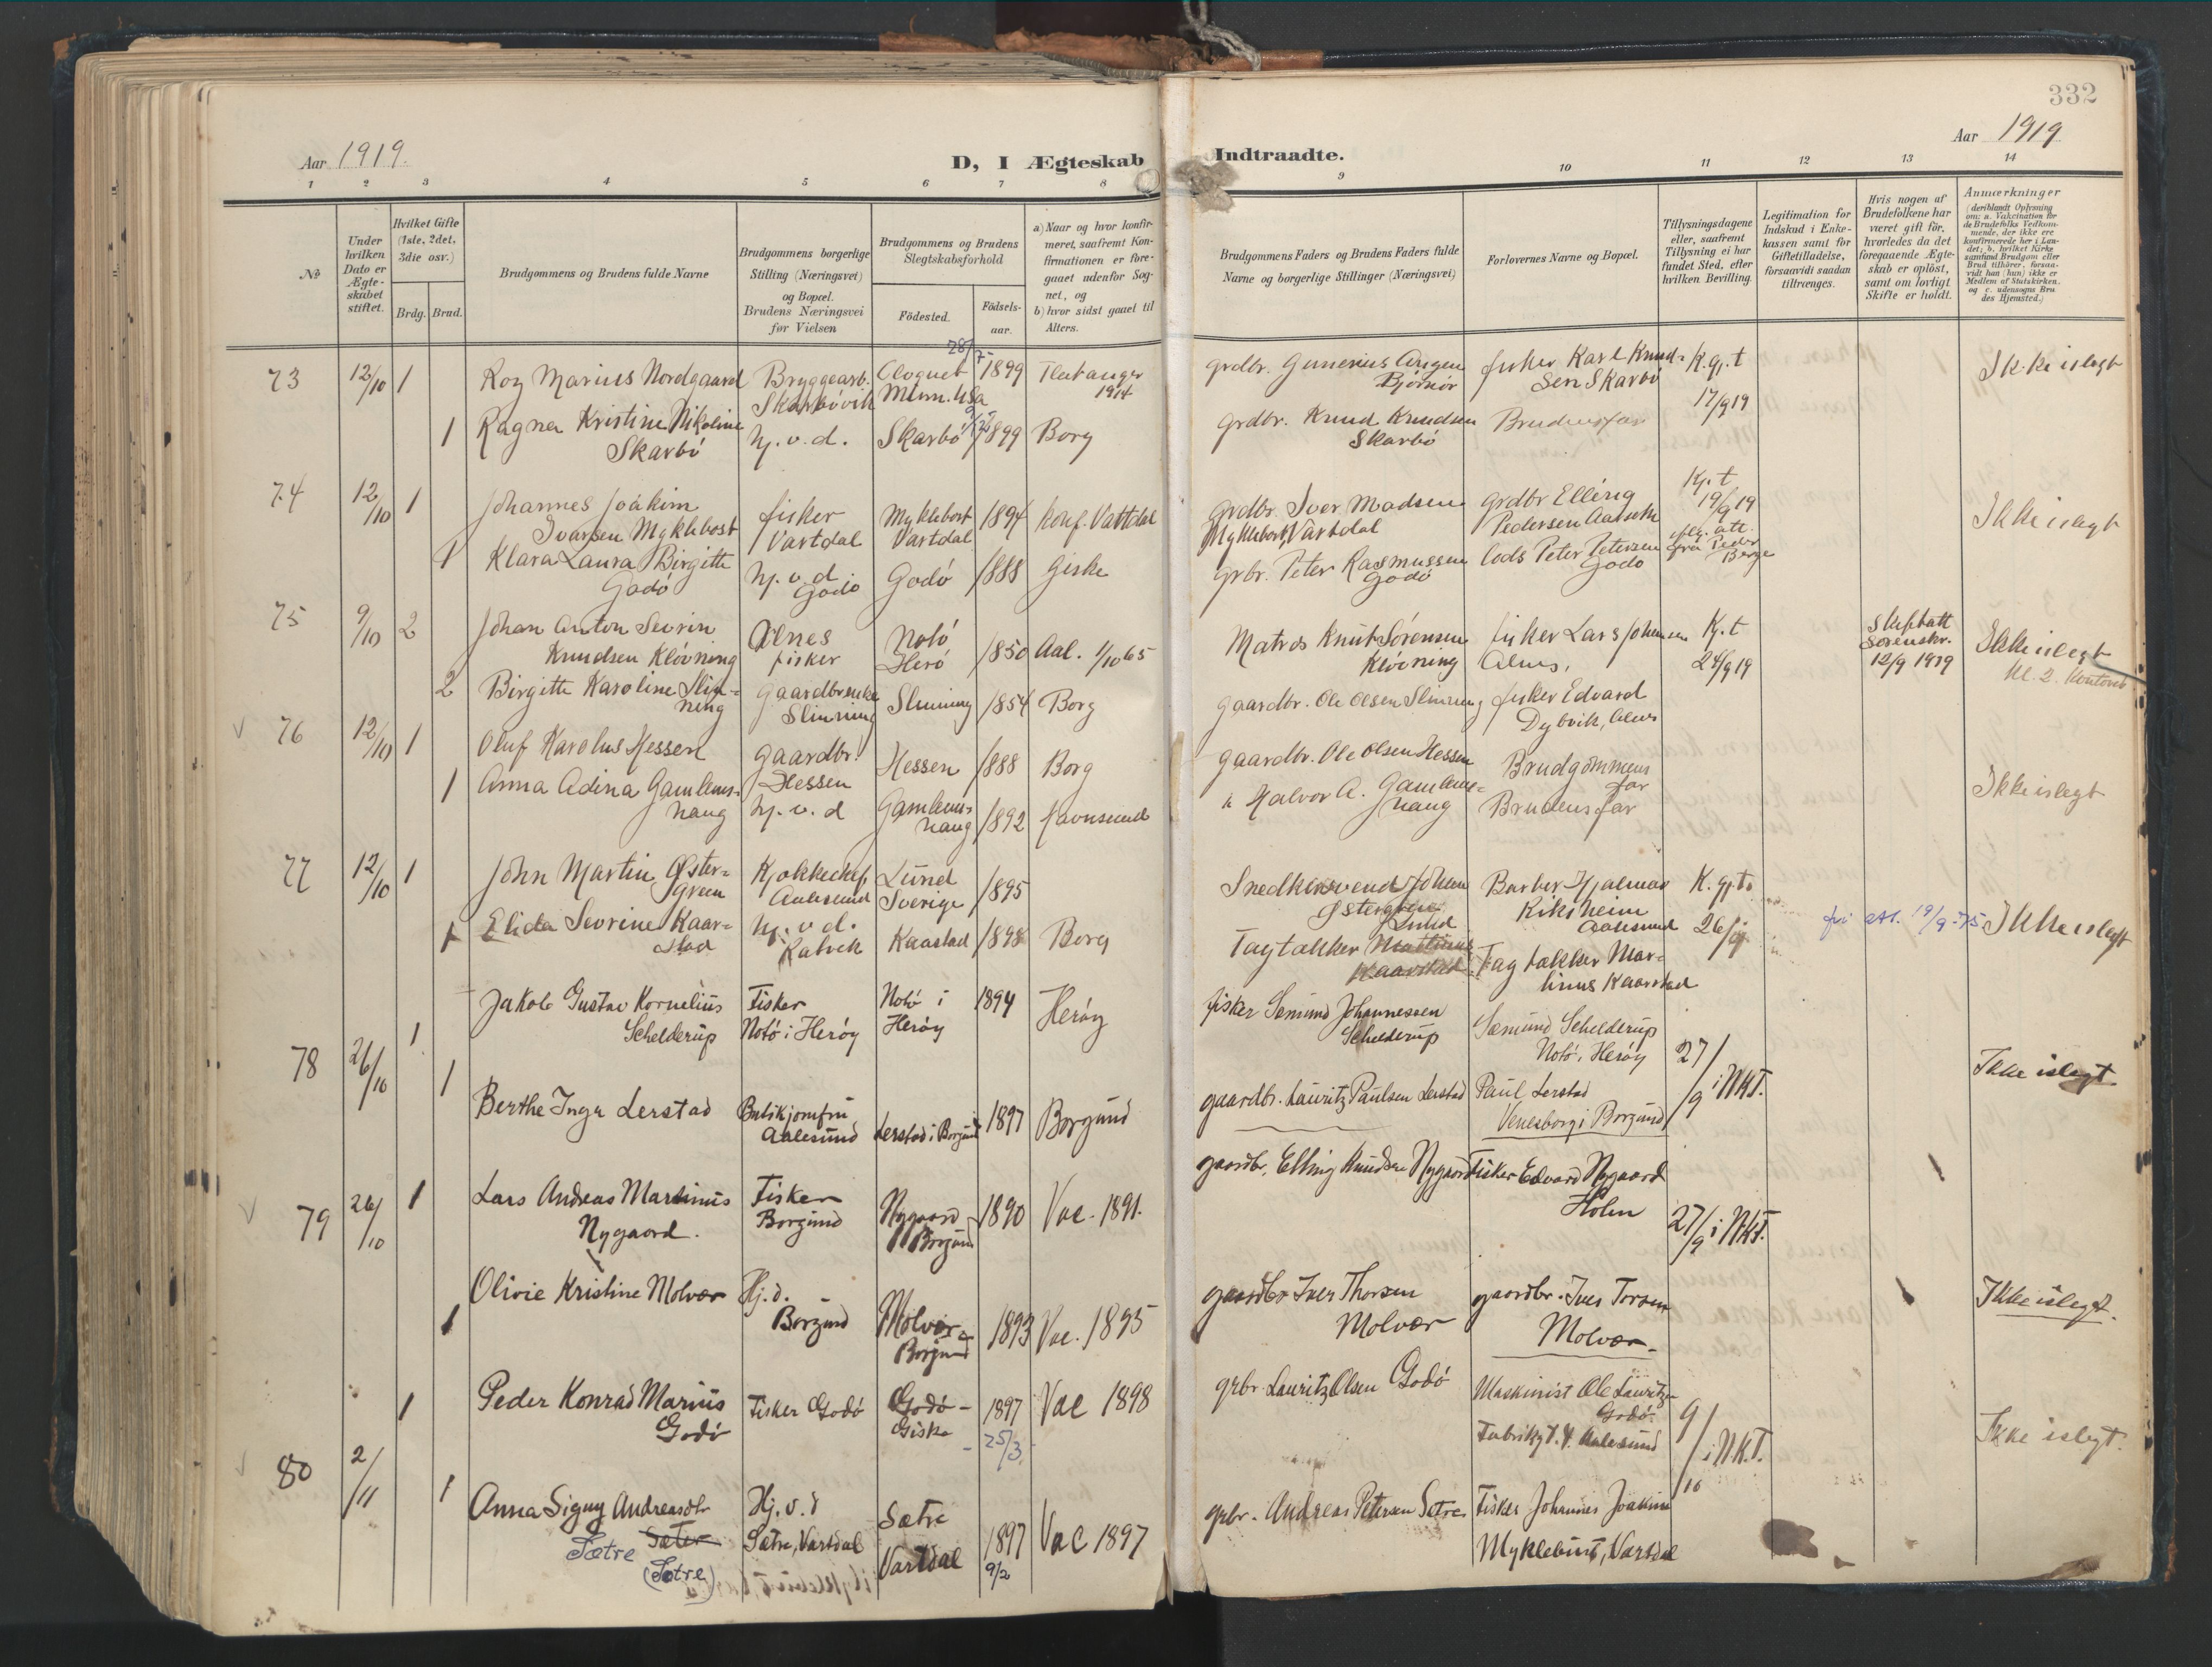 332
Aar 1919.
Aar 1919
D, I Ægteskab Indtraadte.
1 2 3 4 5 6 7 8 9 10 11 12 13 14
No
Under hvilken Dato er Ægte-skabet stiftet.
Hvilket Gifte (1ste, 2det, 3die osv.)
Brdg. Brud.
Brudgommens og Brudens fulde Navne
Brudgommens borgerlige Stilling (Næringsvei) og Bopæl. Brudens Næringsvei før Vielsen
Brudgommens og Brudens Slegtskabsforhold
Födested.
Födsels-aar.
a) Naar og hvor konfir-meret, saafremt Kon-firmationen er fore-gaaet udenfor Sog-net, og
b) hvor sidst gaaet til Alters.
Brudgommens Faders og Brudens Faders fulde Navne og borgerlige Stillinger (Næringsvei)
Forlovernes Navne og Bopæl.
Tillysningsdagene eller, saafremt Tillysning ei har fundet Sted, efter hvilken Bevilling.
Legitimation for Indskud i Enke-kassen samt for Giftetilladelse, forsaavidt saadan tiltrænges.
Hvis nogen af Brudefolkene har været gift før, hvorledes da det foregaaende Ægte-skab er oplöst, samt om lovligt Skifte er holdt.
Anmærkninger (deriblandt Oplysning om: a. Vakcination for de Brudefolks Vedkom-mende, der ikke ere konfirmerede her i Lan-det; b. hvilket Kirke-samfund Brudgom eller Brud tilhører, forsaa-vidt han (hun) ikke er Medlem af Statskirken, og c. udensogns Bru-des Hjemsted.)
73 12/10 1 Roy Marius Nordgaard Bryggearb. Skarbövik Cloquet Minn. Usa 28/7 1899 Flatanger 1914
grdbr. Gunerius Angen Björnör fisker Karl Knud-sen Skarbö K. gj. t 17/9 19 Ikke islegt
1 Ragna Kristine Nikoline Skarbö hj. v. d. Skarbö 1899 Borg
grdbr. Knud Knudsen Skarbö Brudens far
74 12/10 1 Johannes Joakim Ivarsen Myklebost fisker Vartdal Myklebost Vartdal 1894 konf. Vartdal
grdbr. Iver Madsen Myklebost, Vartdal grdbr Elling Pedersen Kj. t 19/9 19 Ikke islegt
1 Klara Laura Birgitte Godö hj. v. d Godö Godö 1888 Giske
grbr. Peter Rasmussen Godö Lods Peter Petersen Godö att. fra Peder Berge
75 9/10 2 Johan Anton Sevrin Knudsen Klövning Alnes fisker Notö Herö 1850 Aal. 1/10 65
Matros Knut Sörensen Klövning fisker Lars Johansen Alnes, Kj. t 24/9 19 Skifteatt Sorenskr. 12/9 1919 Ikke islegt
Kl. 2. Kontoret
2 Birgitte Karoline Slin-ning gaardbrenke Slinning Slinning 1854 Borg
gaardbr. Ole Olsen Slinning fisker Edvard Dybvik, Alnes
76 12/10 1 Oluf Karolus Hessen gaardbr. Hessen Hessen 1888 Borg
gaardbr. Ole Olsen Hessen Brudgommens far Ikke islegt
1 Anna Adina Gamlems-haug hj. v. d Gamlems-haug 1892 Havnsund
" Halvor A. Gamlems-haug Brudens far
77 12/10 1 John Martin Öster-green Kjøkkechef, Aalesund Lund Sverige 1895
Snedkersvend Johan Östergreen Lund Barber Hjalmar Riksheim Aalesund K. gj. t. 26/9 att. 19/9-75 Ikke islegt
1 Elida Sevrine Kaar-stad hj. v. d. Ratvik Kaastad 1898 Borg
Tagtækker Martinus Kaarstad Tagtækker Mar-tinus Kaarstad
78 26/10 1 Jakob Gustav Kornelius Schelderup Fisker Notö i Heröy Notö i Heröy 1894 Heröy
fisker Semund Johannessen Schelderup Sæmund Schelderup Notö i Heröy 27/9 i NKT. Ikke islegt.
1 Berthe Inga Lerstad Butikjomfru Aalesund Lerstad i Borgund 1897 Borgund
gaardbr. Lauritz Paulsen Lerstad Paul Lerstad Venesborg i Borgund
79 26/10 1 Lars Andreas Martinus Nygaard. Fisker Borgund Nygaard Borgund 1890 Vac. 1891.
gaardbr. Elling Knudsen Nygaard Fisker Edvard Nygaard Holen 27/9 i NKT.
1 Olivie Kristine Molvær Hj. d. Borgund Molvær Borgund 1893 Vac. 1895
gaardbr Iver Thorsen Molvær gaardbr. Iver Torsen Molvær Ikke islegt.
80 2/11 1 Peder Konrad Marius Godö Fisker Godö Godö - Giske 1897 25/3 Vac 1898
grbr. Lauritz Olsen Godö Maskinist Ole Lauritz Godö. Aalesund 9/10 i NKT. Ikke islegt.
1 Anna Signy Andreasdtr Sæter Sætre (Sætre) Hj. v. d Sætre, Vartdal Sætre Vartdal 1897 9/2 Vac 1897
grbr. Andreas Petersen Sætre Fisker Johannes Joakim Myklebust, Vartdal